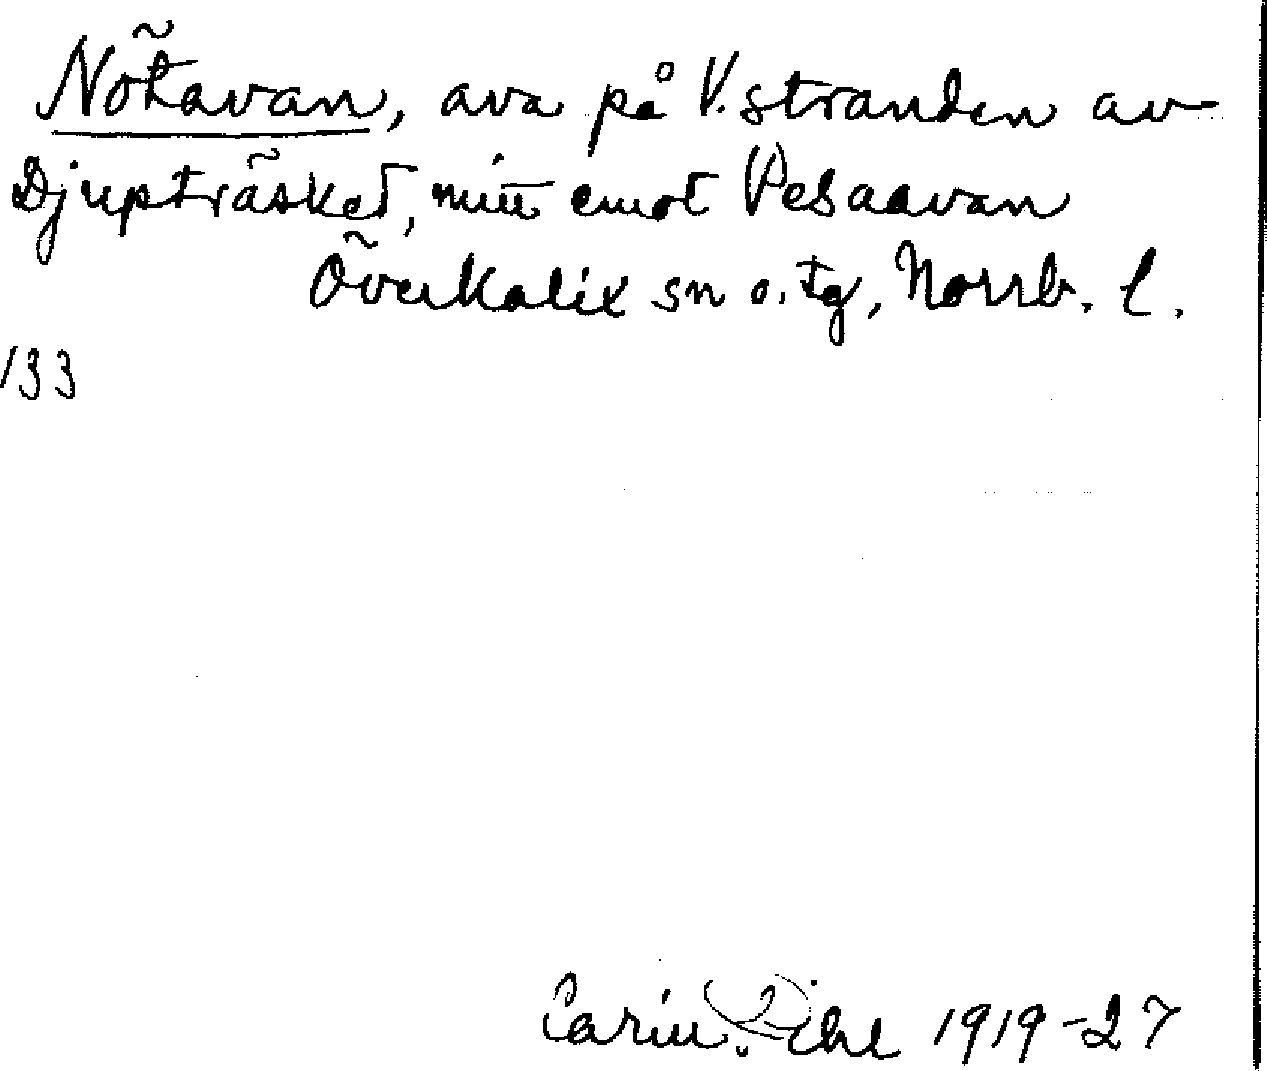 Nötavan, ava på V. stranden av
Djupträsket, mitt emot Pesaavan
Överkalix sn o. tg, Norrb. l.
133
Carin Pihl 1919-27